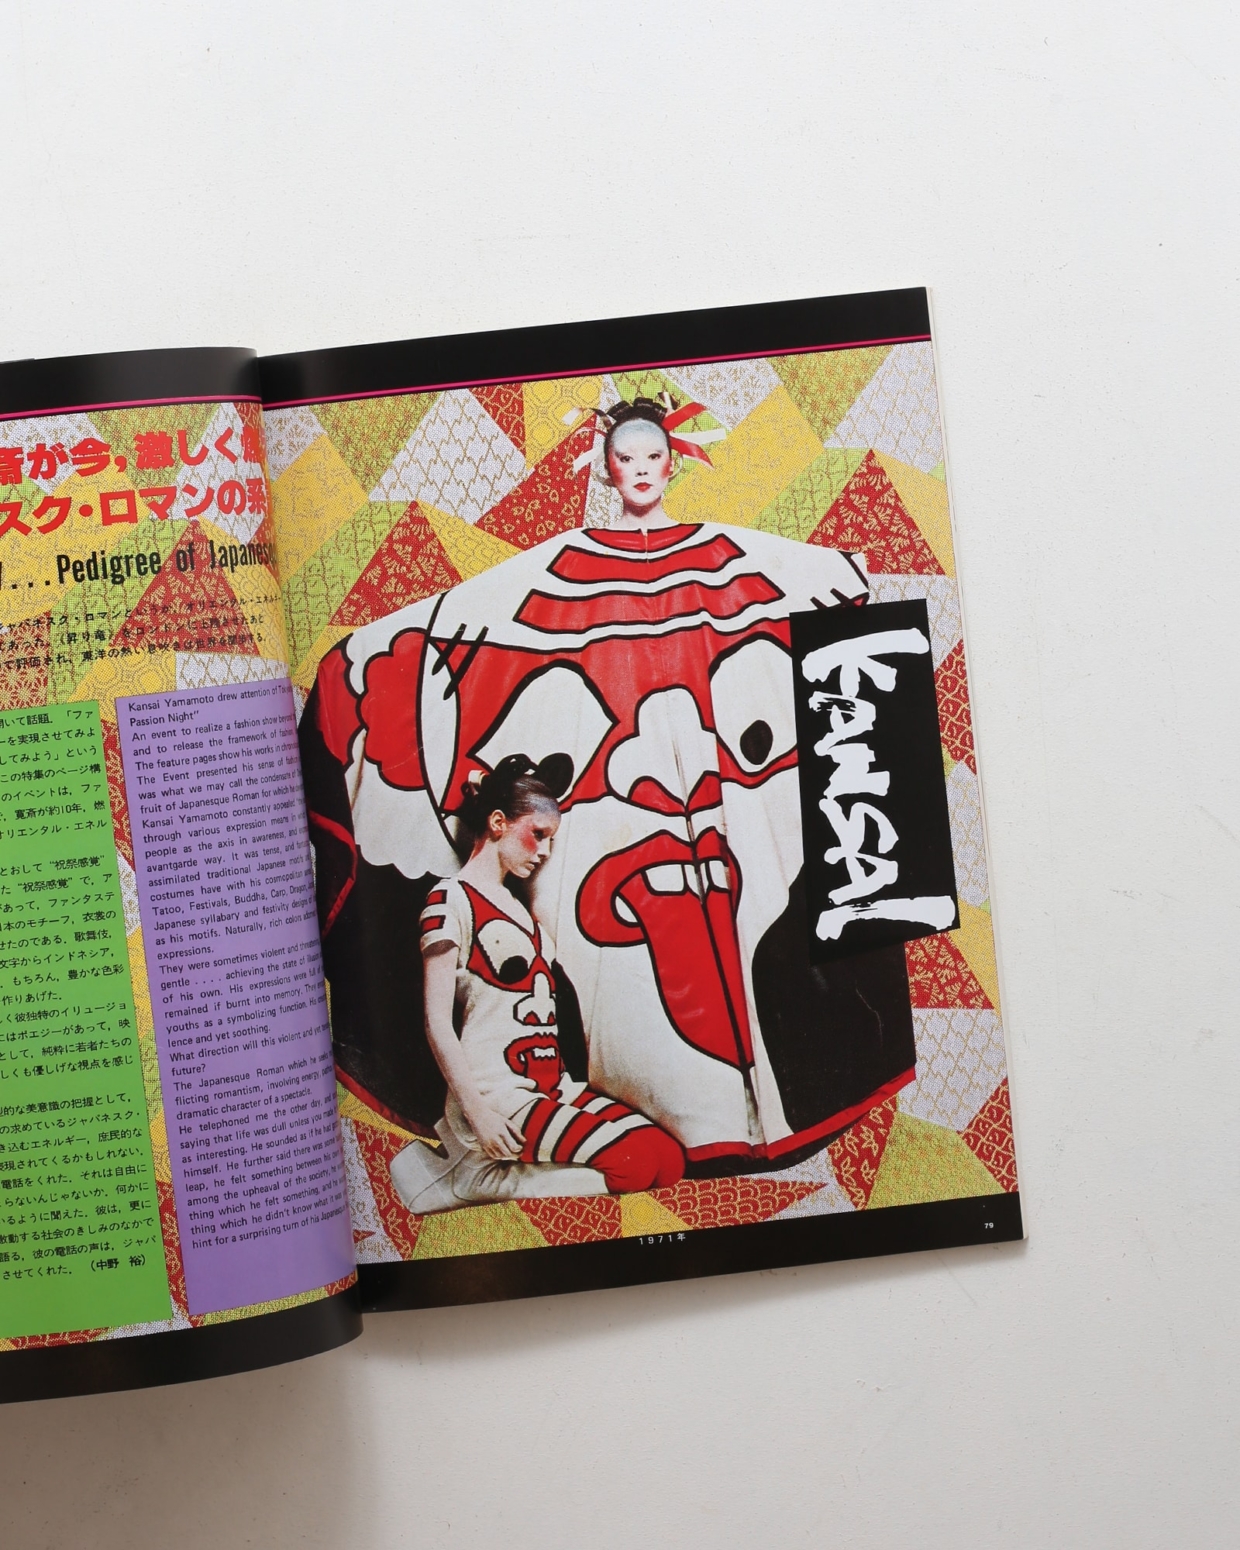 斎が今，激しく
スク・ロマンの系
...Pedigree of Japanes
ジャパネスク・ロマンというか，オリエンタル・エネル
であった。《昇り竜》をロンドンに上陸させたあと
て評価され，東洋の熱い息吹きは世界を闊歩する。
開いて話題。「ファ
ーを実現させてみよ
してみよう」という
この特集のページ構
のイベントは，ファ
，寛斎が約10年，燃
オリエンタル・エネル
とおして“祝祭感覚”
た“祝祭感覚”で，ア
があって，ファンタステ
日本のモチーフ，衣裳の
せたのである。歌舞伎，
文字からインドネシア，
，もちろん，豊かな色彩
作りあげた。
しく彼独特のイリュージョ
にはポエジーがあって，映
として，純粋に若者たちの
しくも優しげな視点を感じ
型的な美意識の把握として，
の求めているジャパネスク・
き込むエネルギー，庶民的な
表現されてくるかもしれない。
電話をくれた。それは自由に
らないんじゃないか，何かに
いるように聞えた。彼は，更に
激動する社会のきしみのなかで
語る，彼の電話の声は，ジャパ
させてくれた。（中野　裕）
Kansai Yamamoto drew attention of
Passion Night"
An event to realize a fashion show beyond
and to release the framework of fashion
The feature pages show his works in chrono
The Event presented his sense of fash
was what we may call the condensate of
fruit of Japanesque Roman for which he
Kansai Yamamoto constantly appealed
through various expression means in
people as the axis in awareness, and
avantgarde way. It was tense, and
assimilated traditional Japanese motifs
costumes have with his cosmopolitan
Tatoo, Festivals, Buddha, Carp, Dragon,
Japanese syllabary and festivity designs of
as his motifs. Naturally, rich colors adorned
expressions.
They were sometimes violent and threatening
gentle .... achieving the state of illusion
of his own. His expressions were full of
remained if burnt into memory. They
youths as a symbolizing function. His
lence and yet soothing.
What direction will this violent and yet
future?
The Japanesque Roman which he seeks
flicting romantism, involving energy,
dramatic character of a spectacle.
He telephoned me the other day, and
saying that life was dull unless you made
as interesting. He sounded as if he had
himself. He further said there was some
leap, he felt something between his
among the upheaval of the society, he
thing which he felt something, and he
thing which he didn't know what it was
hint for a surprising turn of his Japanesque
KANSAI
1971年
79